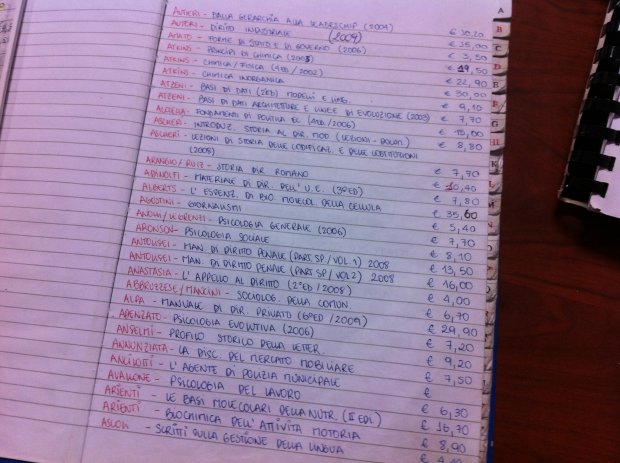 AUTIERI - DALLA GERARCHIA ALLA LEADERSCHIP (2009) € 30,20
AUTERI - DIRITTO INDUSTRIALE (2009) € 35,00
AMATO - FORME DI STATO E DI GOVERNO (2006) € 3,50
ATKINS - PRINCIPI DI CHIMICA (2008) € 49,50
ATKINS - CHIMICA/FISICA (4ED/2002) € 22,90
ATKINS - CHIMICA INORGANICA € 30,00
ATZENI - BASI DI DATI (2ED) MODELLI E LING. € 9,10
ATZENI - BASI DI DATI ARCHITETTURE E LINEE DI EVOLUZIONE (2003) € 7,70
FONDAMENTI DI POLITICA EC. (4ED/2006) € 10,00
ASCHERI - INTRODUZ. STORIA AL DIR. MOD. (LEZIONI - € 8,80
ASCHERI - LEZIONI DI STORIA DELLE CODIFICAZ. E DELLE COSTITUZIONI
(2008) € 7,70
ARANGIO/RUIZ - STORIA DIR. ROMANO € 10,40
ADINOLFI - MATERIALE DI DIR. DELL'U.E. (3ªED) € 7,80
ALBERTS - L'ESSENZ. DI BIO. MOLECOL. DELLA CELLULA € 35,60
AGOSTINI - GIORNALISMI € 5,40
ANOLLI/LEGRENZI - PSICOLOGIA GENERALE (2006) € 7,70
ARONSON - PSICOLOGIA SOCIALE € 8,10
ANTOLISEI - MAN. DI DIRITTO PENALE (PART. SP/VOL. 1) 2008 € 13,50
ANTOLISEI - MAN. DI DIRITTO PENALE (PART. SP/VOL 2) 2008 € 16,00
ANASTASIA - L'APPELLO AL DIRITTO (2ªED/2008) € 4,00
ABBRUZZESE/MANCINI - SOCIOLOG. DELLA COMUN. € 6,70
ALPA - MANUALE DI DIR. PRIVATO (6ªED/2009) € 29,90
APENZATO - PSICOLOGIA EVOLUTIVA (2006) € 7,20
ANSELMI - PROFILO STORICO DELLA LETTER. € 9,20
ANNUNZIATA - LA DISC. DEL MERCATO MOBILIARE € 7,50
ANCILLOTTI - L'AGENTE DI POLIZIA MUNICIPALE €
AVALLONE - PSICOLOGIA DEL LAVORO € 6,30
ARIENTI - LE BASI MOLECOLARI DELLA NUTR. (II EDI.) € 16,70
ARIENTI - BIOCHIMICA DELL'ATTIVITA MOTORIA € 8,90
- SCRITTI SULLA GESTIONE DELLA LINGUA €
A
B
C
D